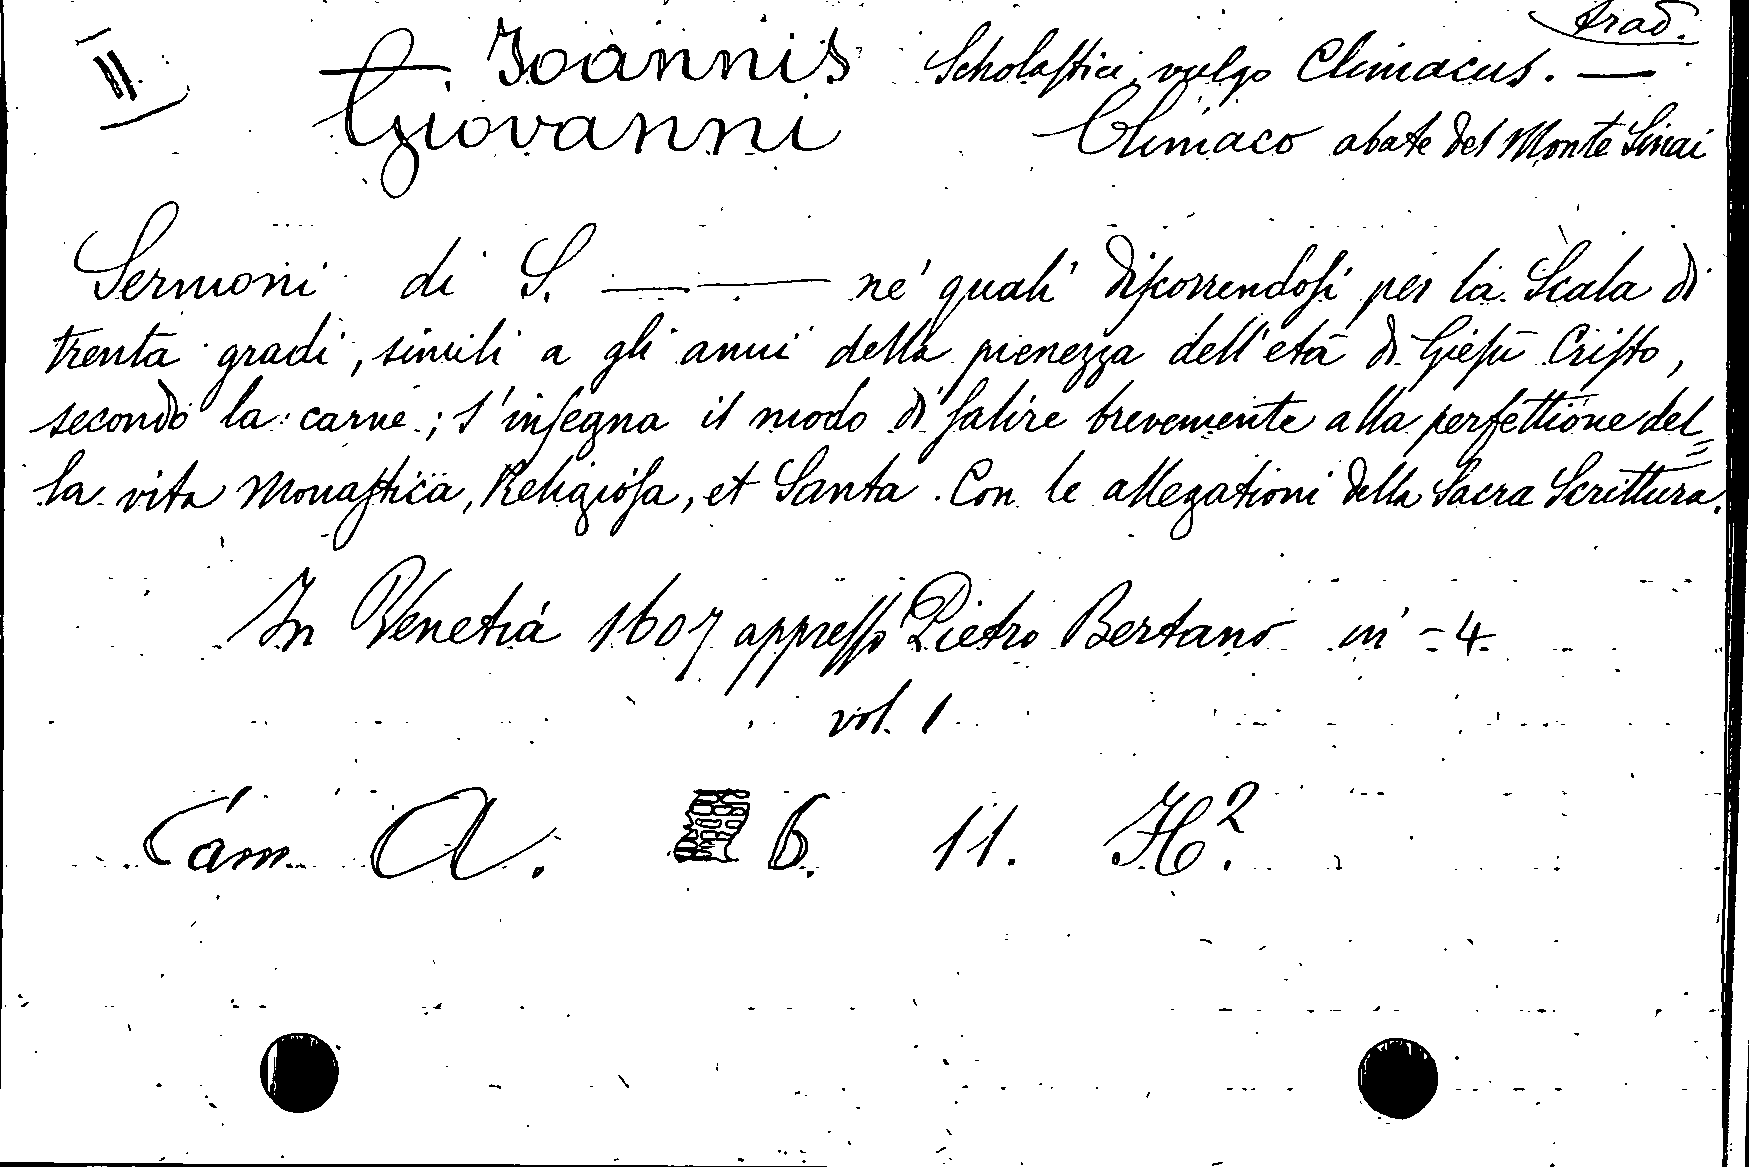 trad.
II — Joannis Scholastici, vulgo Climacus. —
Giovanni Climaco abate del Monte Sinai
Sermoni di S. —— ne' quali discorrendosi per la Scala di
trenta gradi, simili a gli anni della pienezza dell'età di Giesù Cristo,
secondo la carne; s'insegna il modo di salire brevemente alla perfettione del=
la vita Monastica, Religiosa, et Santa. Con le allegationi della Sacra Scrittura.
In Venetia 1607 appresso Pietro Bertano in-4
vol. 1
Cam A. 6. 11. H².